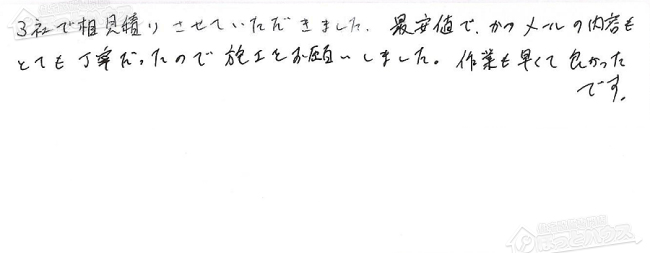 3社で相見積りさせていただきました。最安値で、かつメールの内容も
とても丁寧だったので施工をお願いしました。作業も早くて良かった
です。